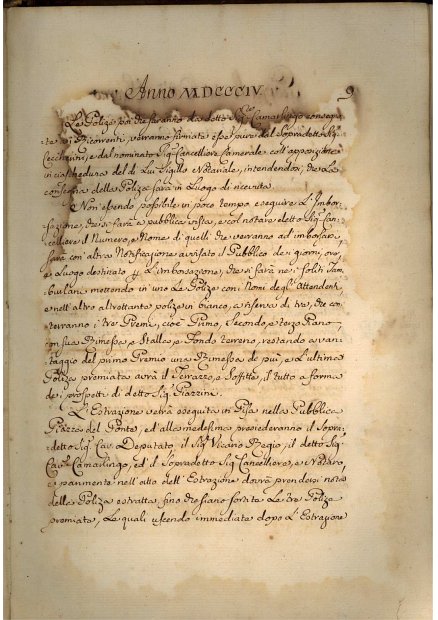 Anno MDCCCIV.
9
Le Polize poi che saranno da detto Sig.re Camarlingo consegna
te a' Ricorrenti, verranno firmate esse pure dal Sopradetto Sig.
Ceccherini, e dal nominato Sig. Cancelliere Camerale coll' apposizione
in ciascheduna del di Lui Sigillo Notariale, intendendosi, che La
consegna della Poliza sarà in Luogo di ricevuta.
Non essendo possibile in poco tempo eseguire L' Imbor
sazione, che si farà a pubblica vista, e col notare detto Sig. Can
celliere il Numero, e Nome di quelli che verranno ad imborsarsi,
sarà con altra Notificazione avvisato il Pubblico de' giorni, ore,
e Luogo destinato p. L' imborsazione, che si farà ne' soliti Tam
burlani mettendo in uno Le Polize con i Nomi degl' Attendenti,
e nell' altro altrettante polize in bianco, a riserva di tre, che con
terranno i tre Premi, cioè Primo, Secondo, e terzo Piano,
con sua Rimessa, e Stalla, e Fondo terreno, restando a van
taggio del primo Premio una Rimessa di più, e L' ultima
Poliza premiata avrà il Terrazzo, e Soffitta, il tutto a forma
de' prospetti di detto Sig. Piazzini.
L' Estrazione verrà eseguita in Pisa nella Pubblica
Piazza del Ponte, ed alla medesima presiederanno il Sopra
detto Sig. Cav. Deputato, il Sig. Vicario Regio, il detto Sig.
Cav. Camarlingo, ed il Sopradetto Sig. Cancelliere, e Notaro,
e parimente nell' atto dell' Estrazione dovrà prendersi nota
della Poliza estratta, fino che siano sortite Le tre Polize
premiate, Le quali essendo immediate dopo L' Estrazione